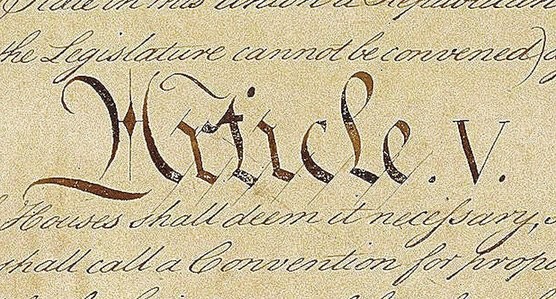 State in this Union a Republican
the Legislature cannot be convened)
Article. V.
Houses shall deem it neceſsary,
shall call a Convention for propo